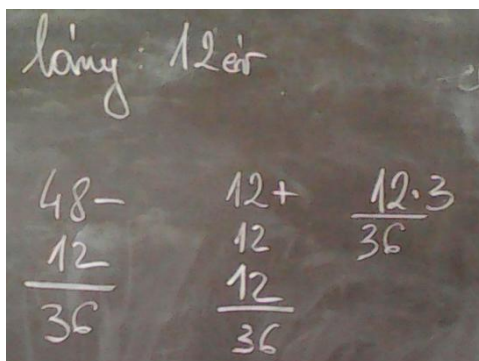 lány: 12 év
48-
12
36
12+
12
12
36
12·3
36